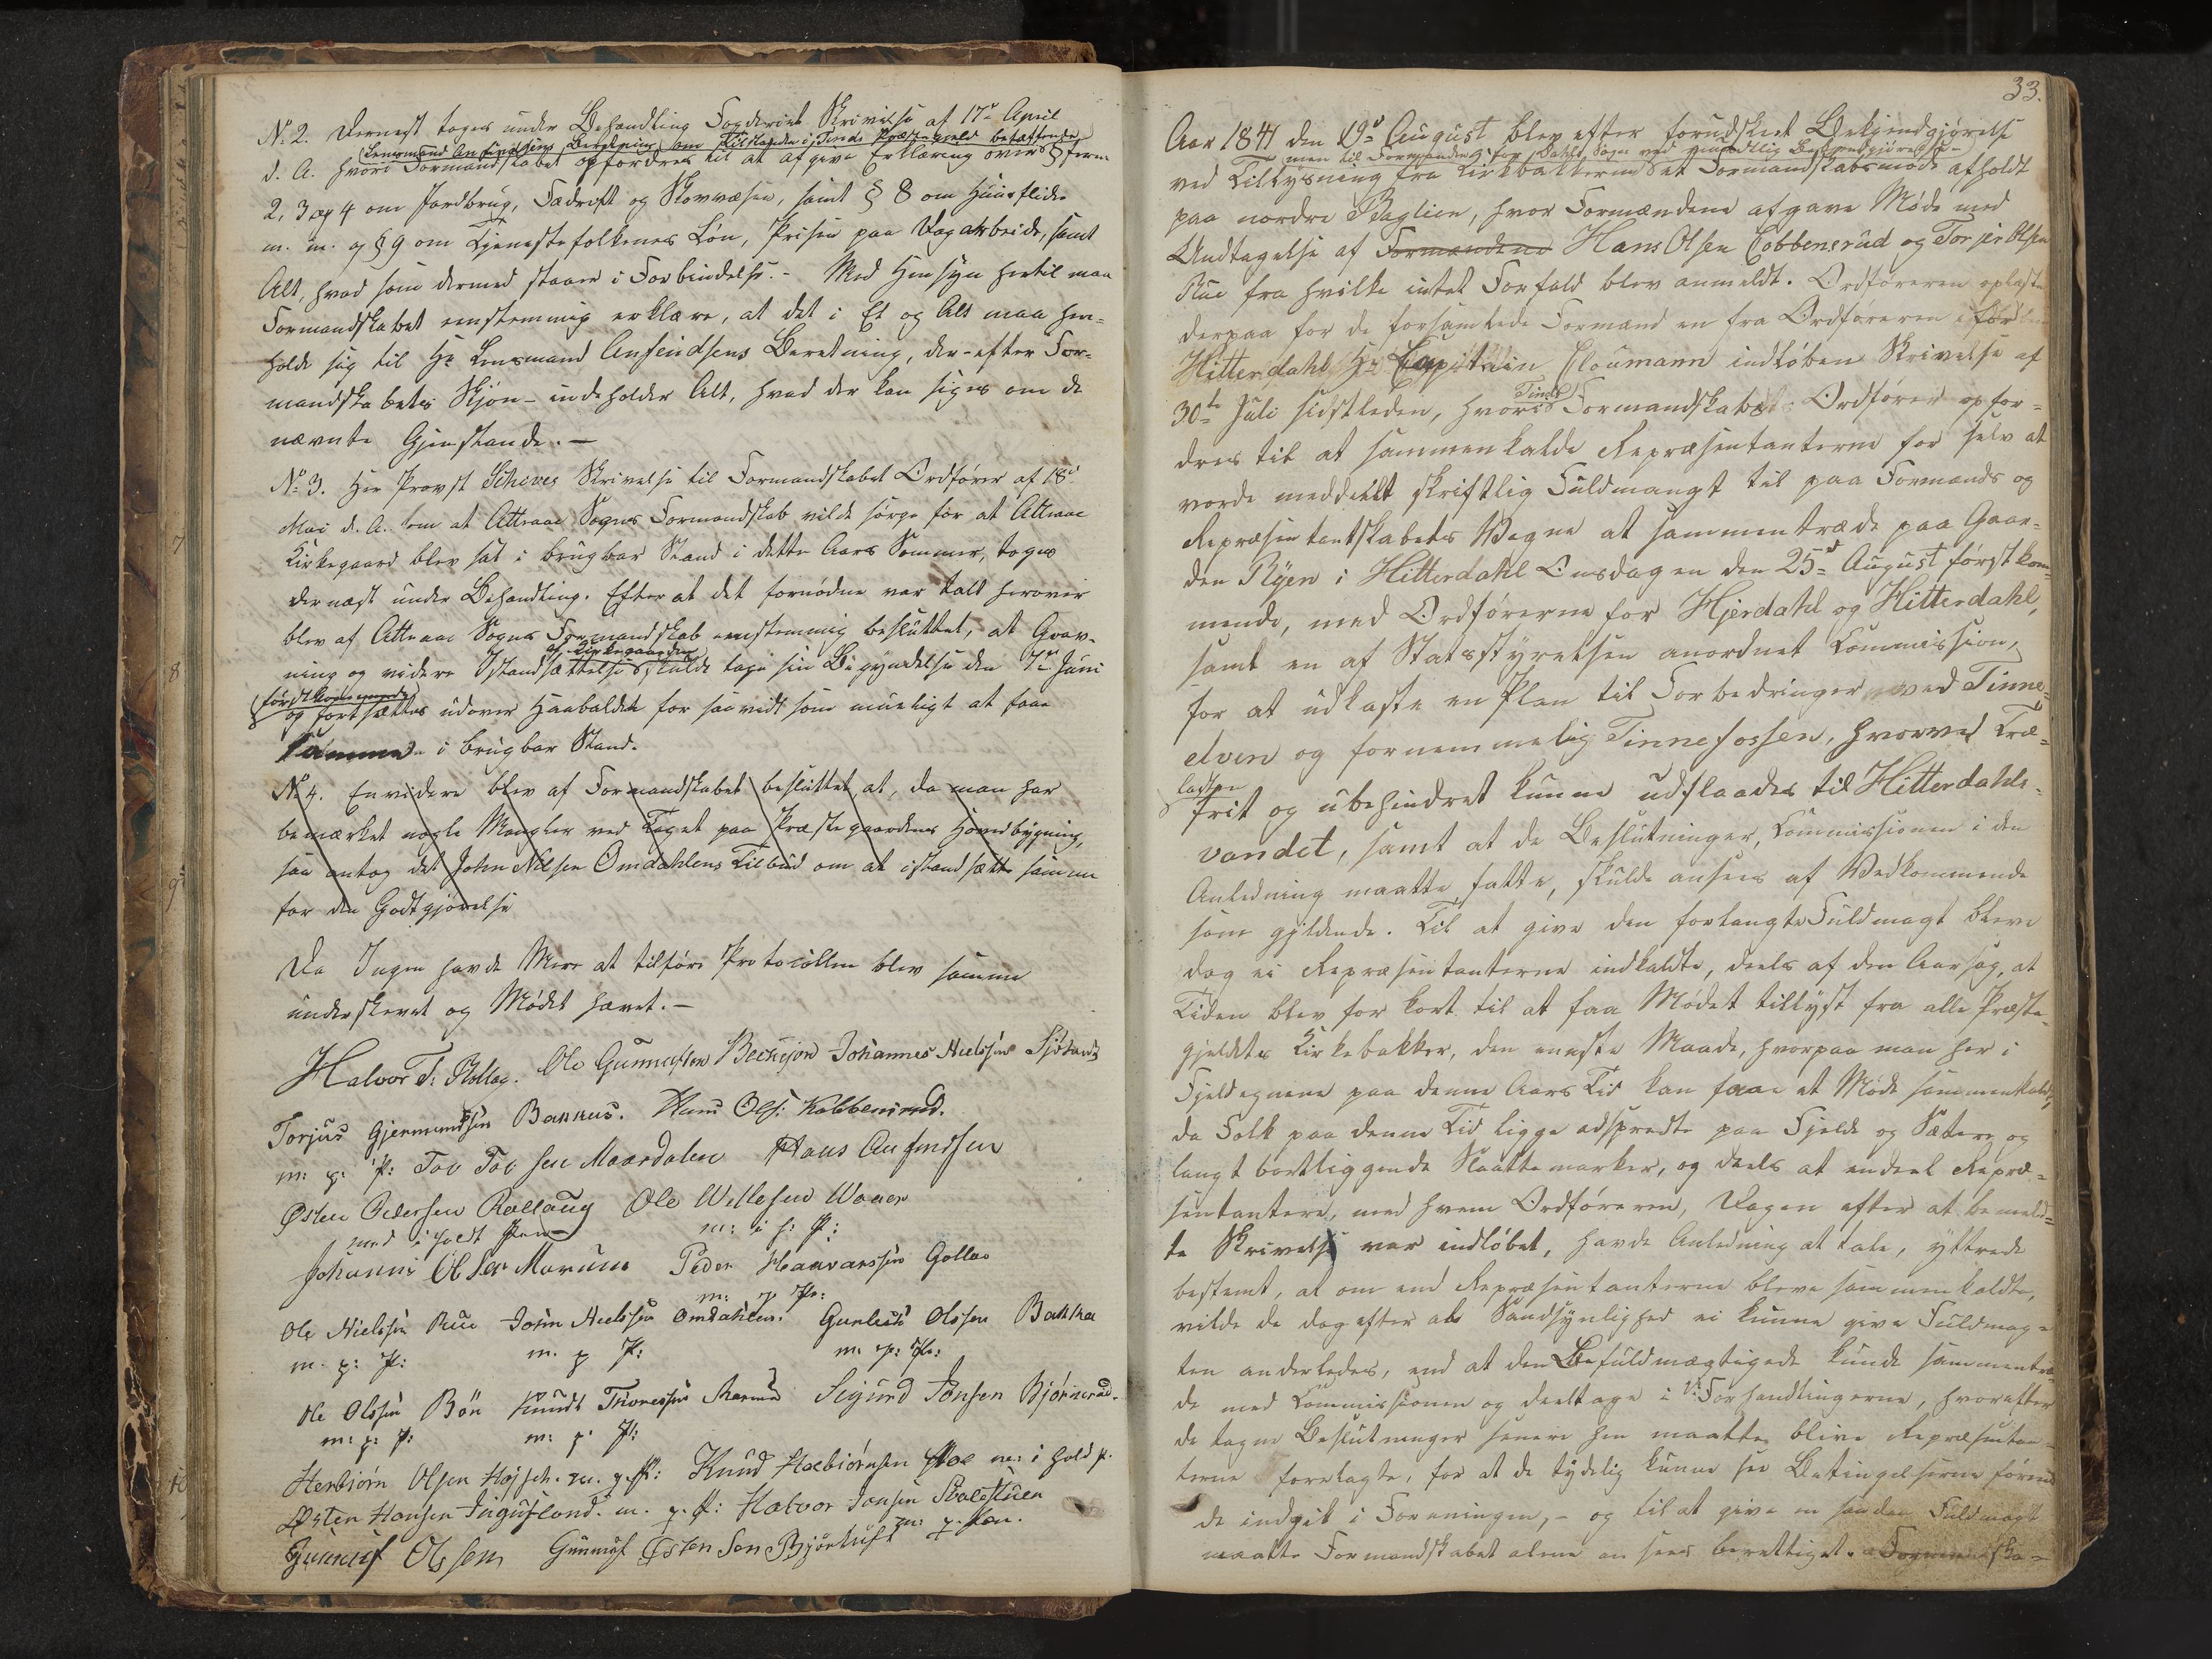 No 2. Dernæst toges under Behandling Fogderiets Skrivelse af 17de April
(Lensmand Anfindsens Beretning om Tilstanden i Tinds Præstegjeld betræffende)
d. A. hvori Formandskabet opfordres til at afgive Erklæring over § ferne
2, 3 og 4 om Jordbrug, Fædrift og Skovvæsen, samt § 8 om Huusfliden
m. m. og § 9 om Tjenestefolkenes Løn, Prisen paa Dagarbeide, samt
Alt, hvad som dermed staaer i Forbindelse. - Med Hensyn hertil maa
Formandskabet eenstemmig erklære, at det i Et og Alt maa hen-
holde sig til Hr Lensmand Anfindsens Beretning, der - efter For-
mandskabets Skjøn - indeholder Alt, hvad der kan siges om de
nævnte Gjenstande. -
No 3. Herr Provst Schives Skrivelse til Formandskabets Ordfører af 18d
Mai d. A. om at Attraae Sogns Formandskab vilde sørge for at Attraae
Kirkegaard blev sat i brugbar Stand i dette Aars Sommer, toges
dernæst under Behandling. Efter at det fornødne var talt herover
blev af Attraae Sogns Formandskab eenstemmig besluttet, at Grav-
af Kirkegaarden
ning og videre Istandsættelse skulde tage sin Begyndelse den 7de Juni
førstkommende
og fortsættes udover Haabaldet for saavidt som mueligt at faae
samme i brugbar Stand.
No 4. Envidere blev af Formandskabet besluttet, at, da man har
bemærket nogle Mangler ved Taget paa Præstegaardens Hovedbygning,
saa antog det John Nilsen Omdahlens Tilbud om at istandsætte samme
for den Godtgjørelse
Da Ingen havde Mere at tilføre Protocollen blev samme
underskrevet og Mødet hævet. -
Halvor T: Rollag. Ole Gunnulfsen Bechejord Johannes Nielsen
Torjus Gjermundsen Bakkus. Hans Ols: Kobbenrud.
m: p: P: Tov Tovsen Maardalen Hans Anfindsen
Østen Pedersen Rollaug Ole Willesen Waaer
med i holdt Pen m: i h: P:
Johannis Olsen Marum Peder Haavarssen Gollae
m: p Pe:
Ole Nielsen Rue John Nielsen Omdahlen. Gunleik Olssen Bakka
m. p: P: m. p P: m. p: Pe:
Ole Olssen Bøn Knudt Thoressen Sigurd Jonsen Bjørnerud.
m: p: P: m: p: P:
Herbiørn Olsen m. p. P: Knud Herbiørnsen m: i hold p.
Østen Hansen Ingulfsland. m. p. P: Halvor Jansen
m: p. Pen.
Gunnuf Olssen Gunnulf Østensen Bjørtuft
33.
Aar 1841 den 19d August blev efter forudskeet Bekjendtgjørelse
(men til Formændene for Dahls Sogn ved mundtlig Bekjendtgjørelse -)
ved Tillysning fra Kirkebakkerne et Formandskabsmøde afholdt
paa nordre Baglien, hvor Formændene afgave Møde med
Undtagelse af Formændene Hans Olsen Cobbenrud og Torjer Olsen
Rue fra hvilke intet Forfald blev anmeldt. Ordføreren oplæste
derpaa for de forsamlede Formænd en fra Ordføreren for
Hitterdahl Hr Capitain Cloumann indløben Skrivelse af
Tinds
30te Juli sidstleden, hvori Formandskabets Ordfører opfor-
dres til at sammenkalde Repræsentanterne for selv at
vorde meddeelt skriftlig Fuldmagt til paa Formands og
Repræsentantskabets Vegne at sammentræde paa Gaar-
den Ryen i Hitterdahl Onsdagen den 25d August førstkom-
mende, med Ordførerne for Hjerdahl og Hitterdahl,
samt en af Statsstyrelsen anordnet Commission,
for at udkaste en Plan til Forbedringer ved Tinne-
elven og fornemmelig Tinnefossen, hvorved Træ-
lasten
frit og ubehindret kunne udflaades til Hitterdahls-
vandet, samt at de Beslutninger, Commissionen i den
Anledning maatte fatte, skulde ansees af Vedkommende
som gjeldende. Til at give den forlangte Fuldmagt bleve
dog ei Repræsentanterne indkaldte, deels af den Aarsag, at
Tiden blev for kort til at faa Mødet tillyst fra alle Præste-
gjeldets Kirkebakker, den eneste Maade, hvorpaa man her i
Fjeldegnene paa denne Aars Tid kan faae et Møde sammenkaldt,
da Folk paa denne Tid ligge adspredte paa Fjelde og Sætere og
langt bortliggende Slaattemarker, og deels at endeel Repræ-
sentantere, med hvem Ordføreren, Dagen efter at bemeld-
te Skrivelse var indløbet, havde Anledning at tale, yttrede
bestemt, at om end Repræsentanterne bleve sammenkaldte,
vilde de dog efter al Sandsynlighed ei kunne give Fuldmag-
ten anderledes, end at den Befuldmægtigede kunde sammentræ-
de med Commissionen og deeltage i Forhandlingerne, hvorefter
de tagne Beslutninger senere hen maatte blive Repræsentan-
terne forelagte, for at de tydelig kunne see Betingelserne førend
de indgik i Foreningen, - og til at give en saadan Fuldmagt
maatte Formandskabet alene ansees berettiget.